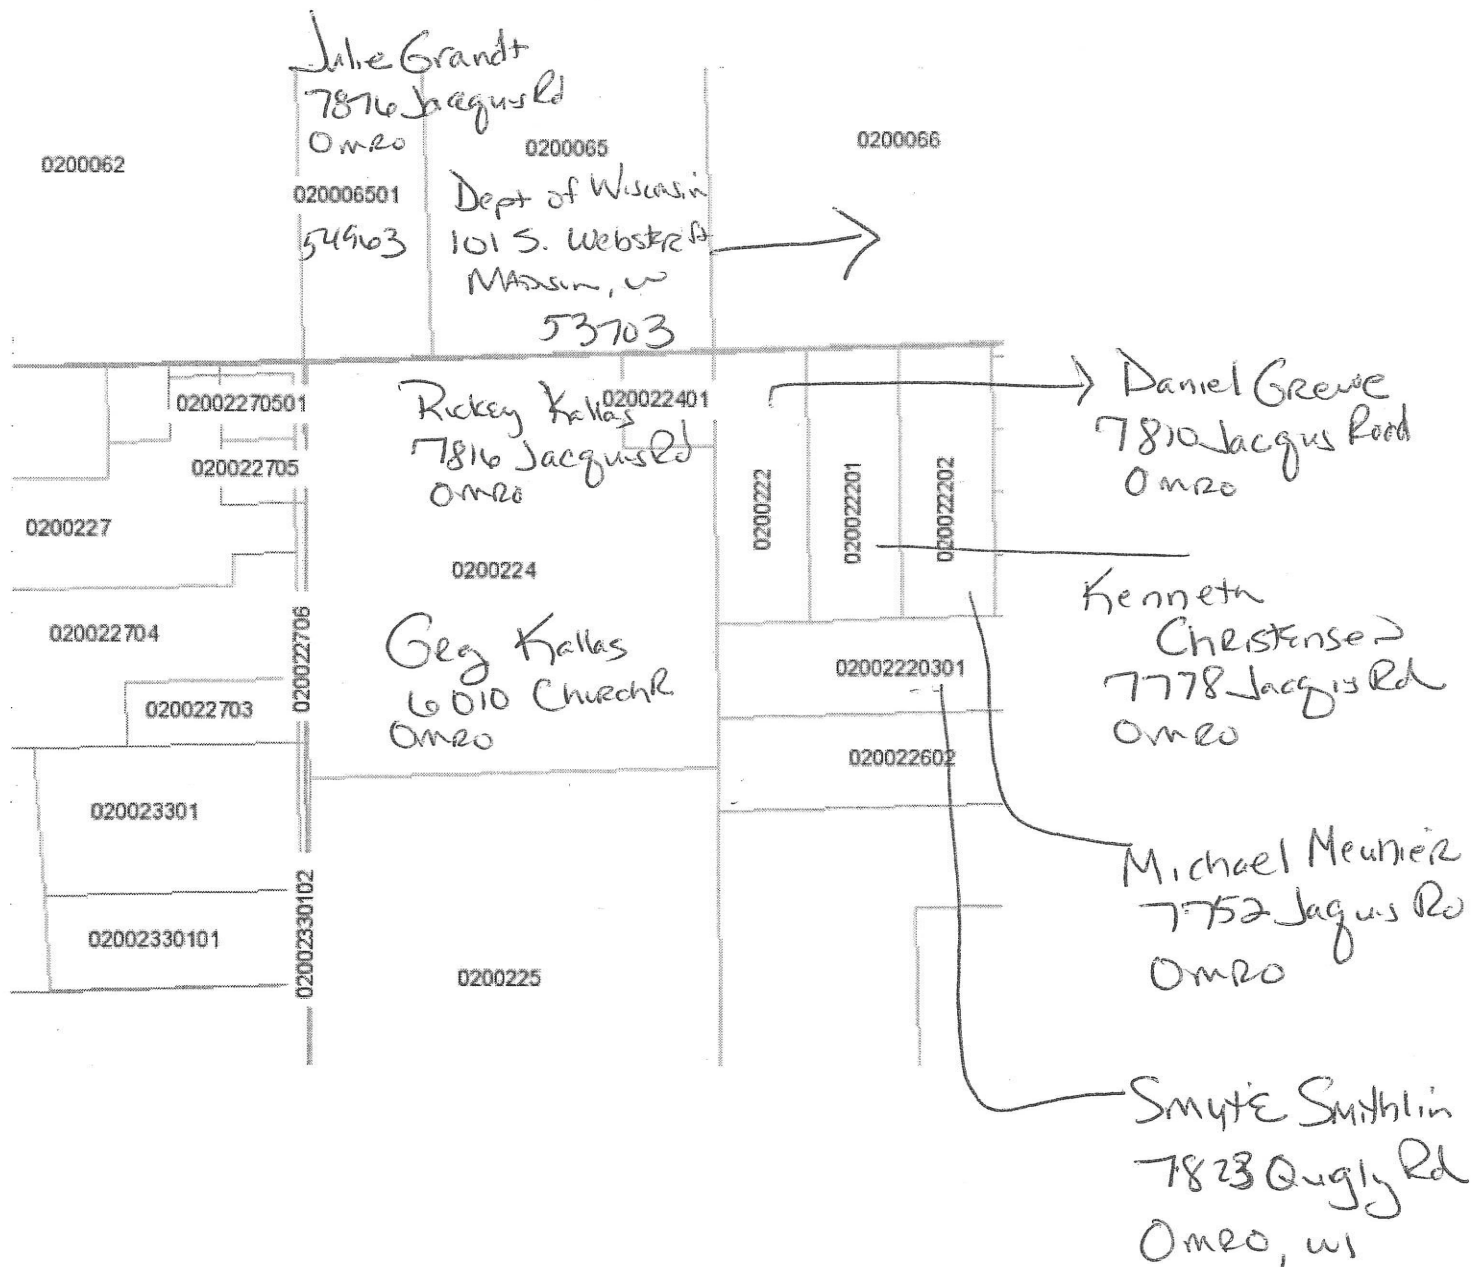 Julie Grandt
7876 Jacquis Rd
Omro
0200062
0200065
0200066
020006501
54963
Dept of Wisconsin
101 S. Webster St
Madison, W
53703
02002270501
020022705
0200227
020022704
020022703
020022706
020023301
02002330101
02002330102
Rickey Kallas
7816 Jacquis Rd
Omro
020022401
0200224
Greg Kallas
6010 Church R.
Omro
0200225
0200222
020022201
020022202
02002220301
020022602
Daniel Grewe
7810 Jacqus Road
Omro
Kenneth
Christensen
7778 Jacqis Rd
Omro
Michael Meunier
7752 Jaqus Rd
Omro
Smithlin
Rd
Omro, WI